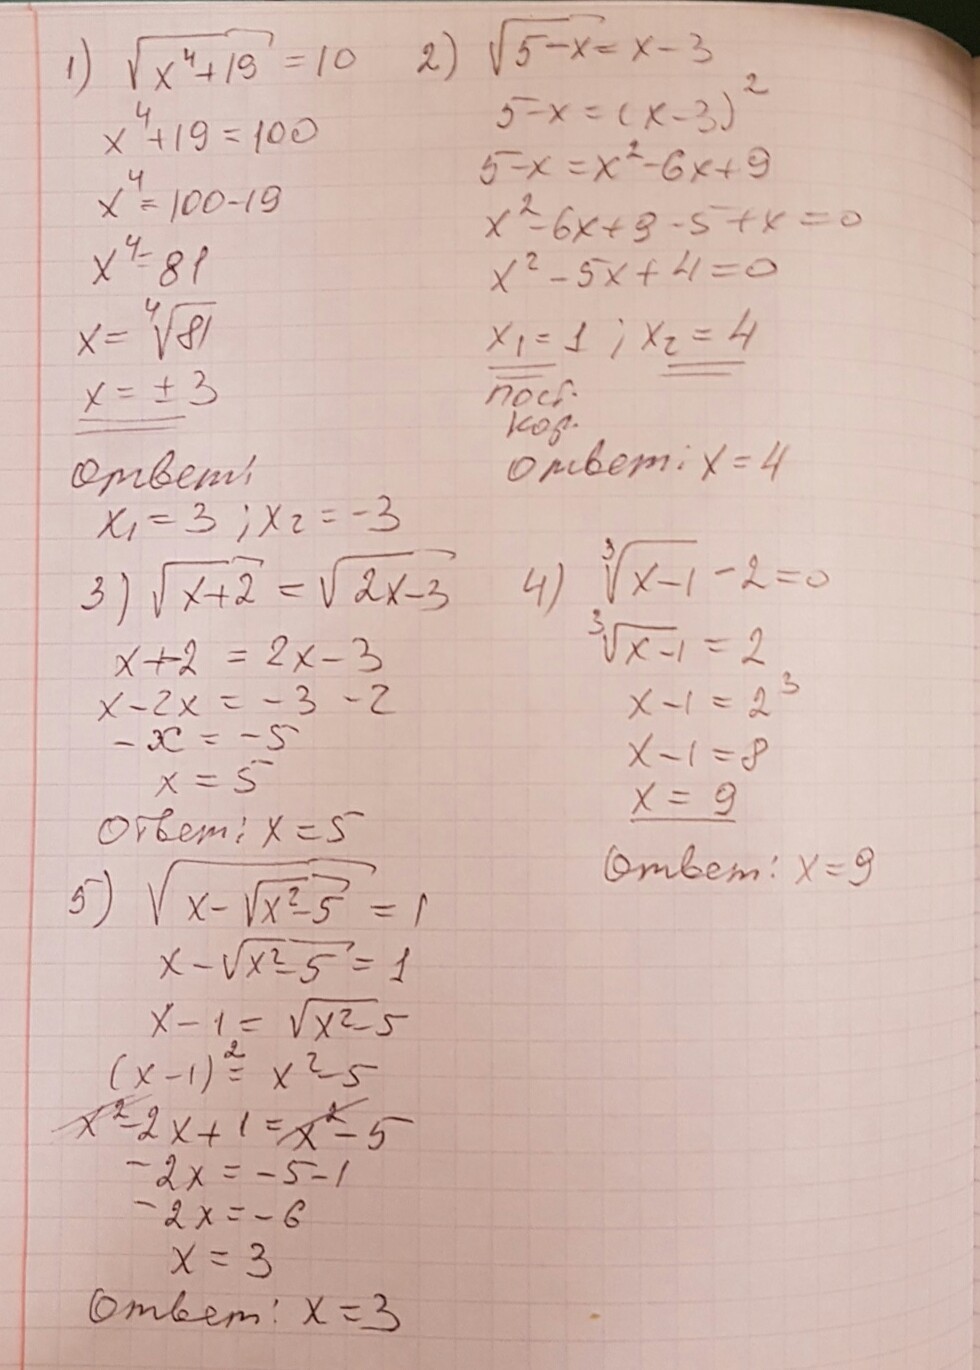 1) √(x⁴+19) = 10
x⁴+19 = 100
x⁴ = 100-19
x⁴ = 81
x = ⁴√81
x = ± 3
Ответ:
x₁ = 3 ; x₂ = -3
2) √(5-x) = x-3
5-x = (x-3)²
5-x = x²-6x+9
x²-6x+9-5+x = 0
x²-5x+4 = 0
x₁ = 1 ; x₂ = 4
пост.
кор.
Ответ: x = 4
3) √(x+2) = √(2x-3)
x+2 = 2x-3
x-2x = -3 -2
-x = -5
x = 5
Ответ: x = 5
4) ³√(x-1) -2 = 0
³√(x-1) = 2
x-1 = 2³
x-1 = 8
x = 9
Ответ: x = 9
5) √(x-√(x²-5)) = 1
x-√(x²-5) = 1
x-1 = √(x²-5)
(x-1)² = x²-5
x²-2x+1 = x²-5
-2x = -5-1
-2x = -6
x = 3
Ответ: x = 3